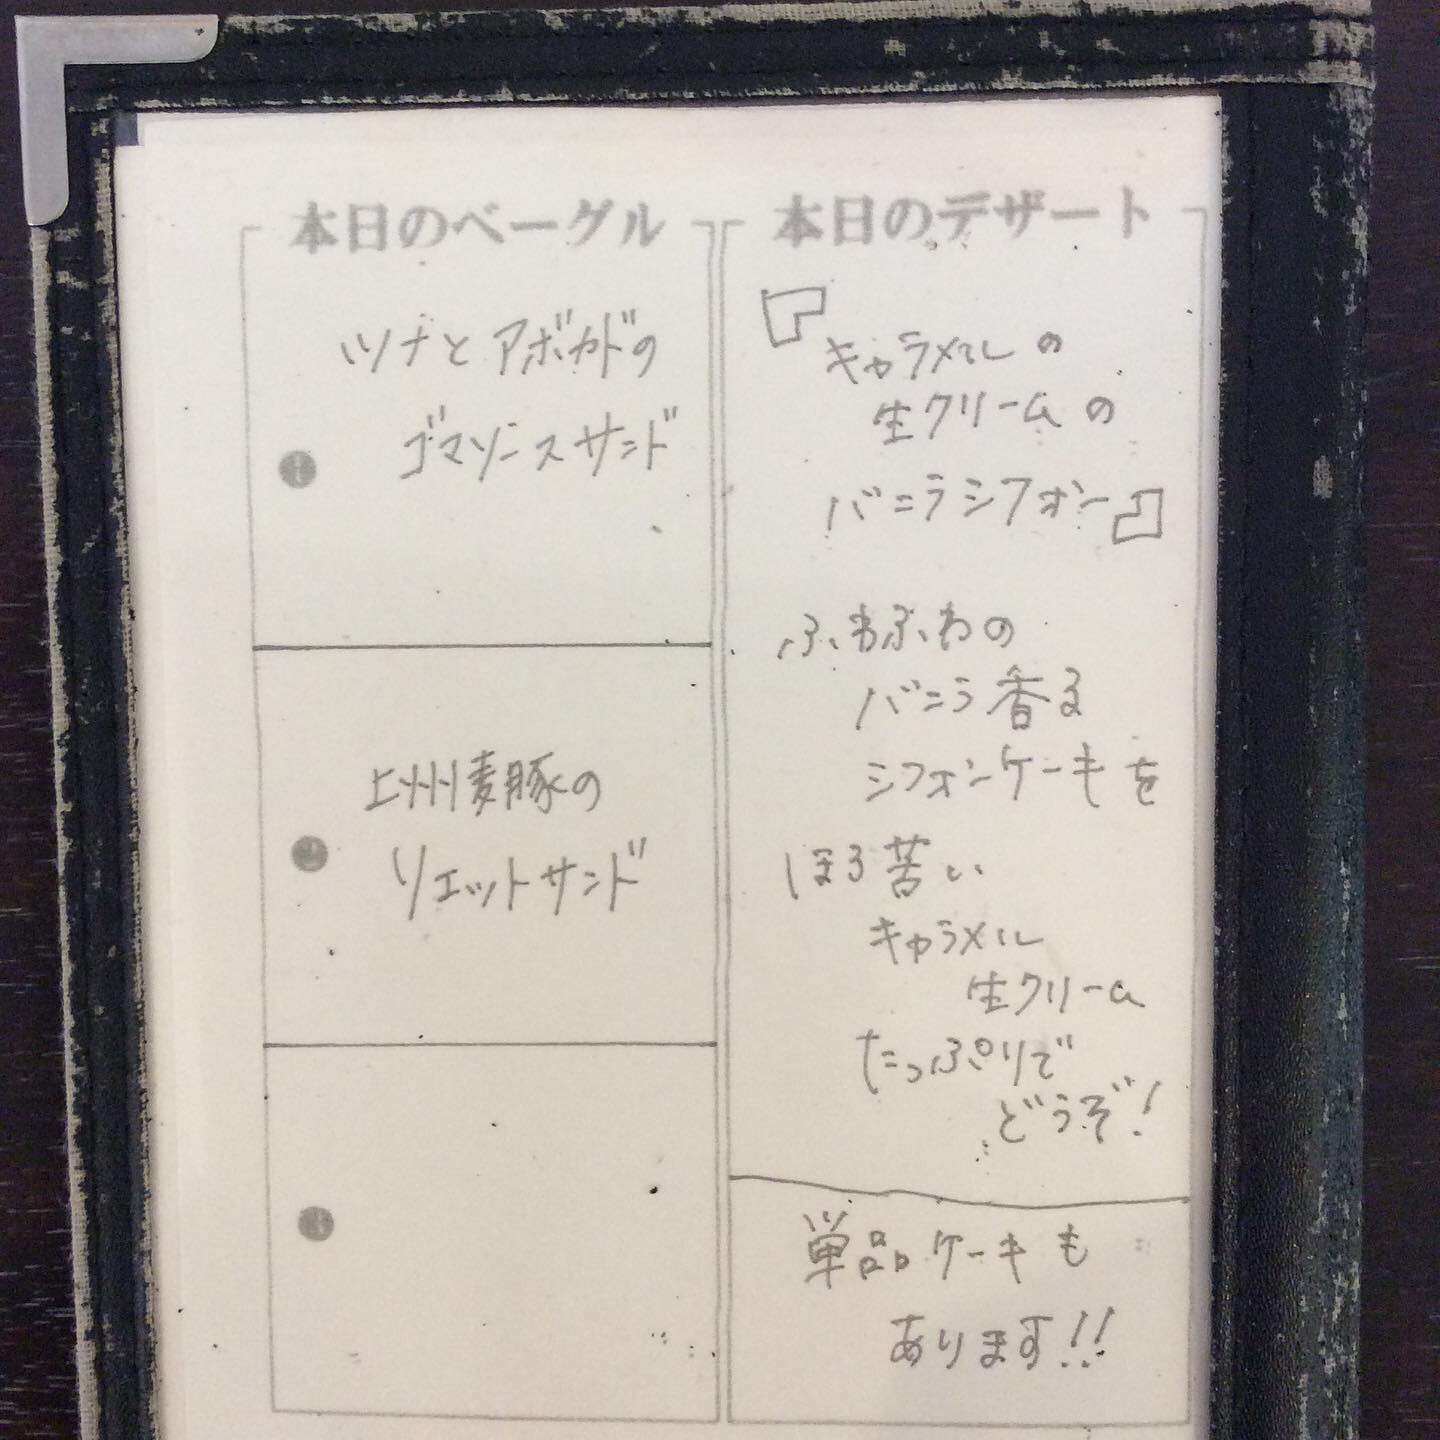 本日のベーグル
❶
ツナとアボカドの
ゴマソースサンド
❷
上州麦豚の
リエットサンド
❸
本日のデザート
『キャラメルの
生クリームの
バニラシフォン』
ふわふわの
バニラ香る
シフォンケーキを
ほろ苦い
キャラメル
生クリーム
たっぷりで
どうぞ!
単品ケーキも
あります!!